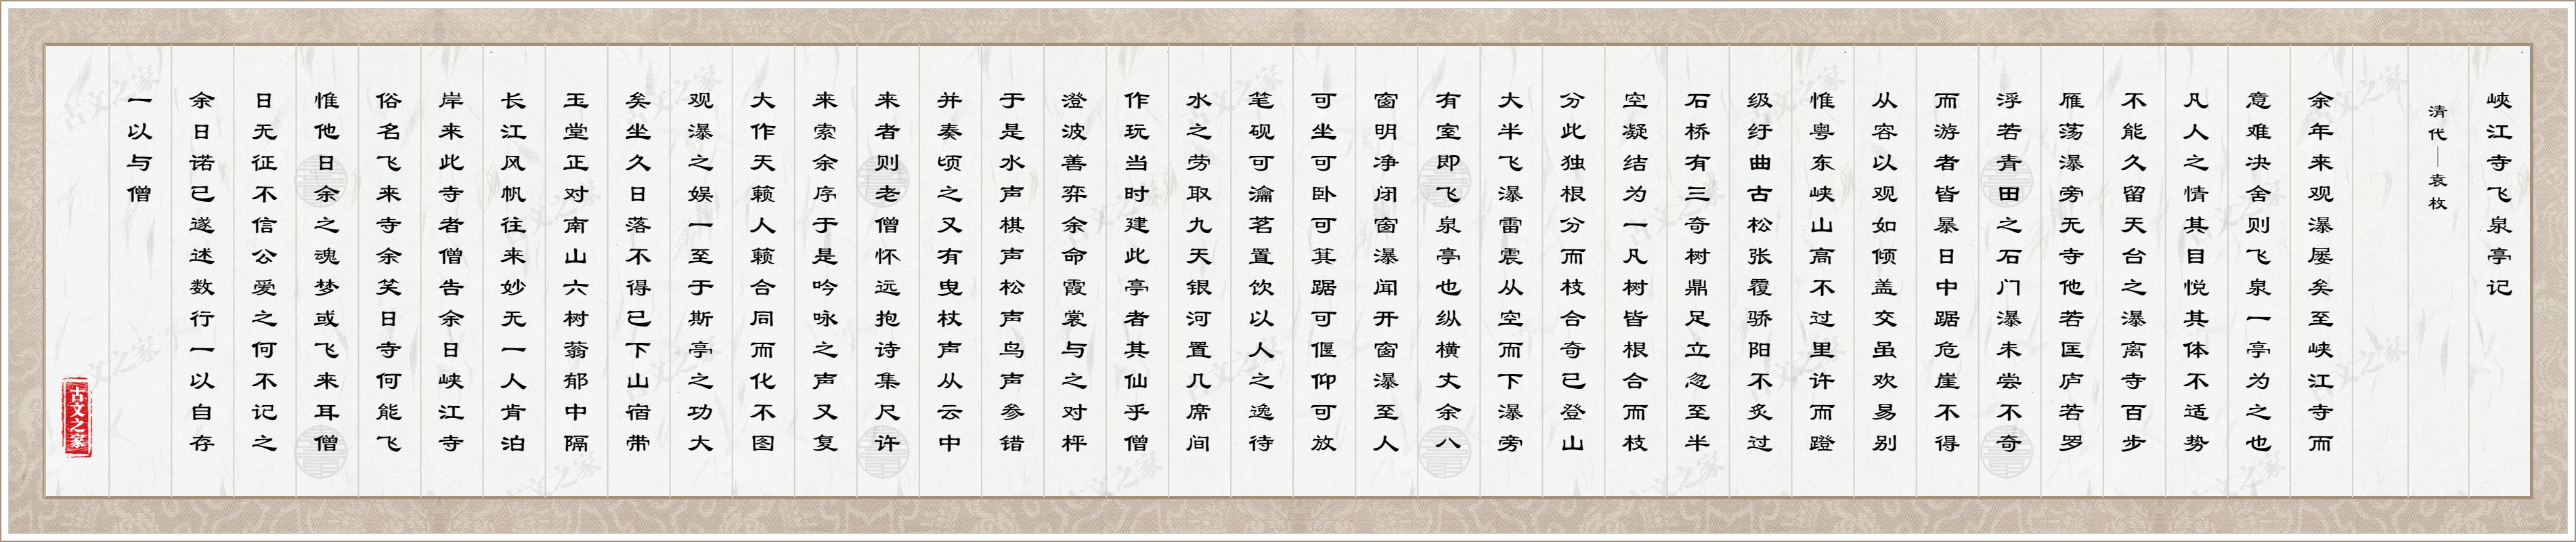 峡江寺飞泉亭记
清代—袁枚
余年来观瀑屡矣至峡江寺而
意难决舍则飞泉一亭为之也
凡人之情其目悦其体不适势
不能久留天台之瀑离寺百步
雁荡瀑旁无寺他若匡庐若罗
浮若青田之石门瀑未尝不奇
而游者皆暴日中踞危崖不得
从容以观如倾盖交虽欢易别
惟粤东峡山高不过里许而蹬
级纡曲古松张覆骄阳不炙过
石桥有三奇树鼎足立忽至半
空凝结为一凡树皆根合而枝
分此独根分而枝合奇已登山
大半飞瀑雷震从空而下瀑旁
有室即飞泉亭也纵横丈余八
窗明净闭窗瀑闻开窗瀑至人
可坐可卧可箕踞可偃仰可放
笔砚可瀹茗置饮以人之逸待
水之劳取九天银河置几席间
作玩当时建此亭者其仙乎僧
澄波善弈余命霞裳与之对枰
于是水声棋声松声鸟声参错
并奏顷之又有曳杖声从云中
来者则老僧怀远抱诗集尺许
来索余序于是吟咏之声又复
大作天籁人籁合同而化不图
观瀑之娱一至于斯亭之功大
矣坐久日落不得已下山宿带
玉堂正对南山六树蓊郁中隔
长江风帆往来妙无一人肯泊
岸来此寺者僧告余曰峡江寺
俗名飞来寺余笑曰寺何能飞
惟他日余之魂梦或飞来耳僧
曰无征不信公爱之何不记之
余曰诺已遂述数行一以自存
一以与僧
古文之家